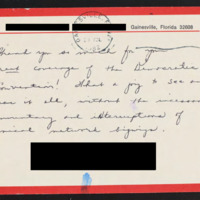 Gainesville, Florida 32608
Thank you so much for your
great coverage of the Democratic
Convention! What a joy to see and
hear it all, without the incessant
commentary and interruptions of
network bigwigs.